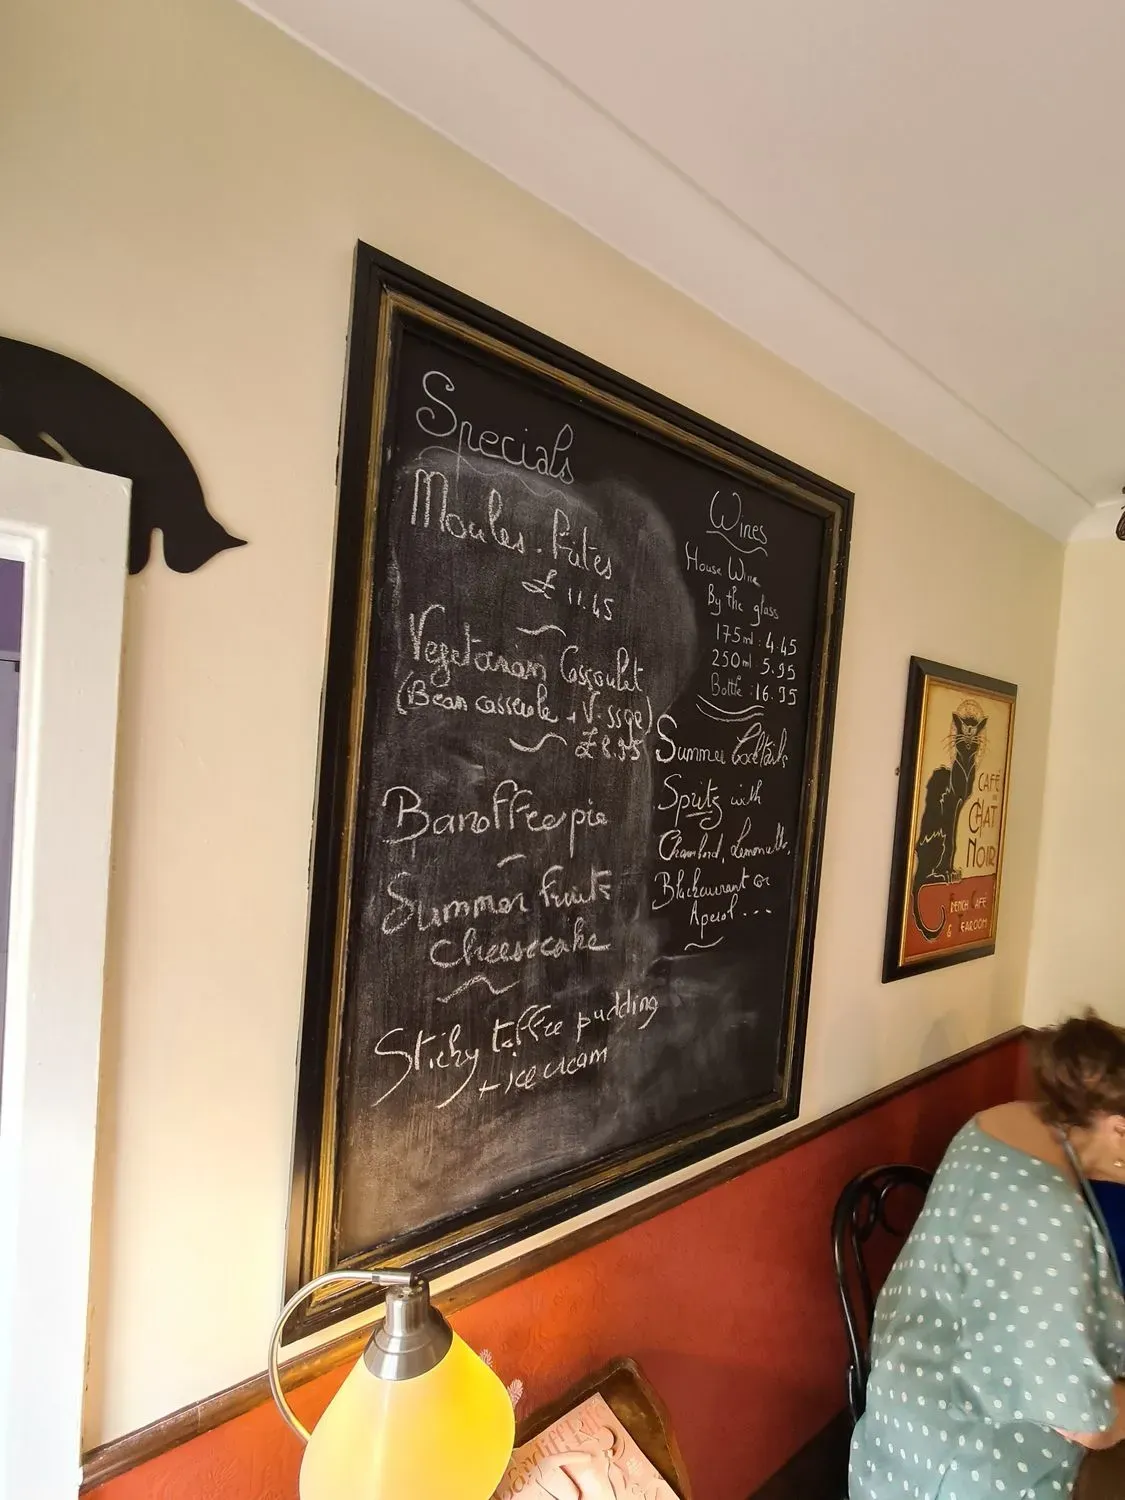 Specials
Moules. Frites
£ 11.45
Vegetarian Cassoulet
(Bean casserole + V. ssge)
£8.95
Banoffee pie
Summer fruits
Cheesecake
Sticky toffee pudding
+ ice cream
Wines
House Wine
By the glass
175ml : 4.45
250ml 5.95
Bottle : 16.95
Summer Cocktails
Spritz with
Chambord, Lemoncello,
Blackcurrant or
Aperol ...
CAFÉ
CHAT
NOIR
FRENCH CAFE
& TEAROOM